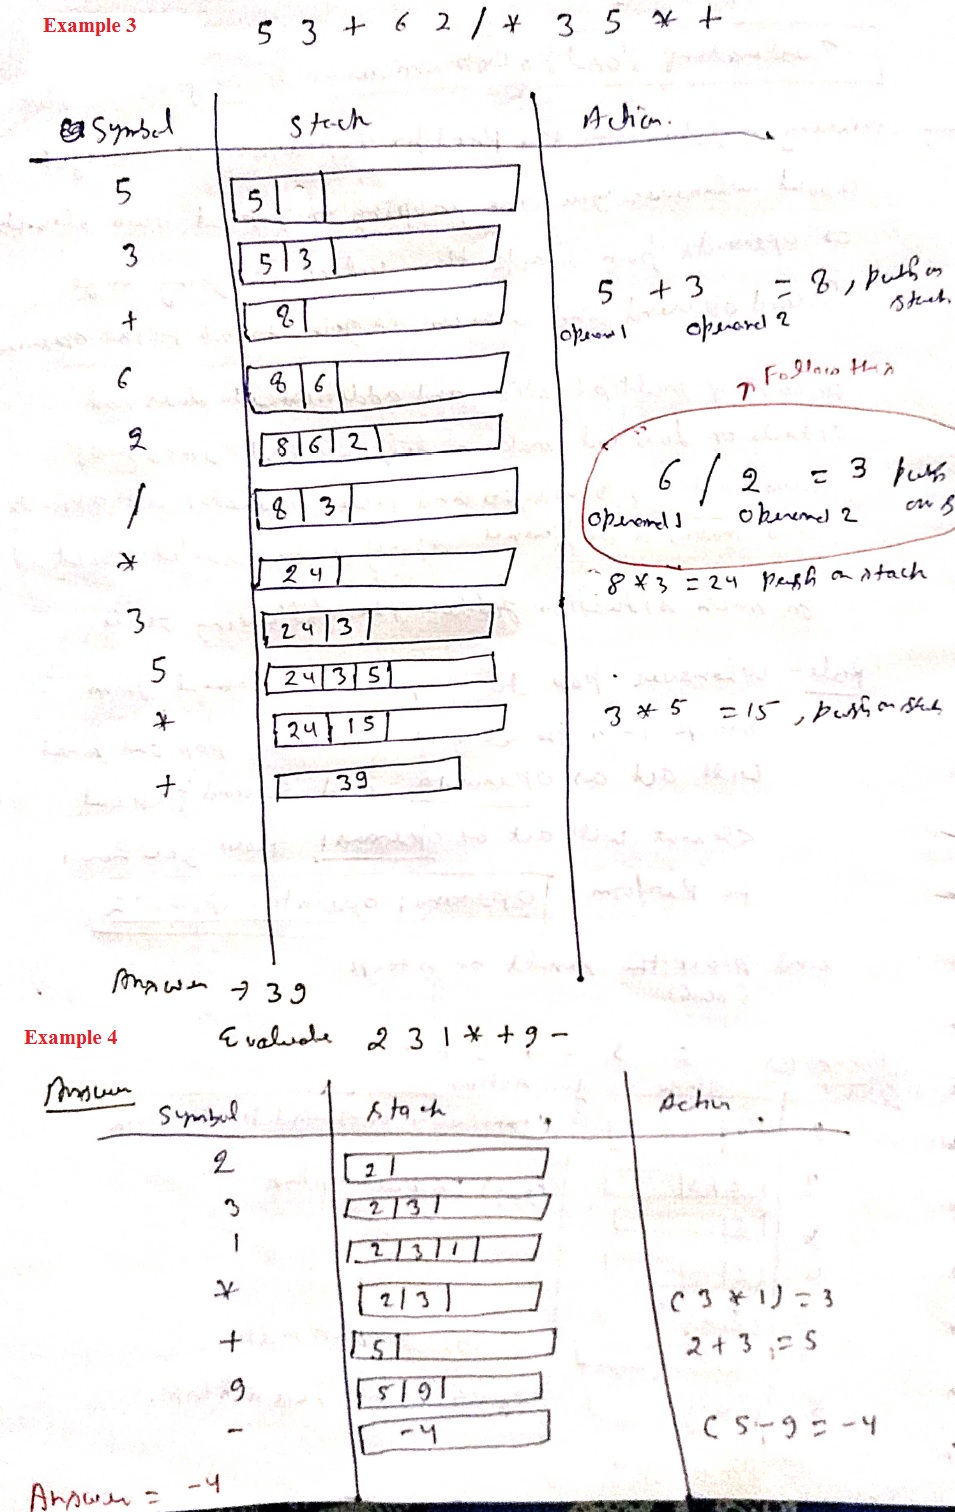 Example 3
5 3 + 6 2 / * 3 5 * +
Symbol Stack Action.
5 5
3 5 3
+ 8 5 + 3 = 8, push on stack
operand 1 operand 2
6 8 6
Follow this
2 8 6 2
/ 8 3 6 / 2 = 3 push on s
operand 1 operand 2
* 24 8 * 3 = 24 push on stack
3 24 3
5 24 3 5
* 24 15 3 * 5 = 15, push on stack
+ 39
Answer → 39
Example 4
Evaluate 2 3 1 * + 9 -
Answer
Symbol Stack Action
2 2
3 2 3
1 2 3 1
* 2 3 (3 * 1) = 3
+ 5 2 + 3 = 5
9 5 9
- -4 (5 - 9 = -4
Answer = -4